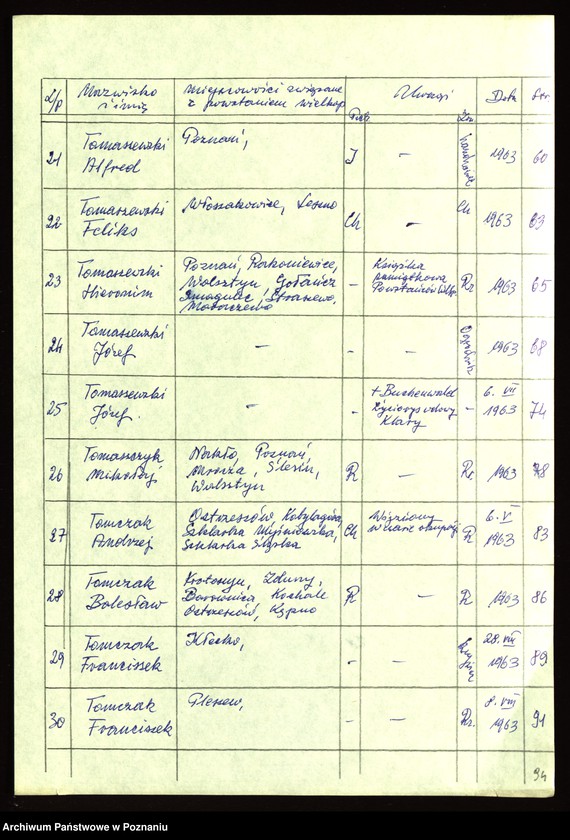 L/p Nazwisko i imię Miejscowości związane z powstaniem wielkop Uwagi Data Str
21 Tomaszewski Alfred Poznań, J — 1963 60
22 Tomaszewski Feliks Włoszakowice, Leszno Ch - Ch 1963 63
23 Tomaszewski Hieronim Poznań, Rakoniewice, Wolsztyn, Gołańcz - Książka pamiątkowa Powstańców Wlkp. Rz. 1963 65
24 Tomaszewski Józef — - — 1963 68
25 Tomaszewski Józef. - - + Buchenwald Życiorys wdowy Klary - 6. VII 1963 74
26 Tomaszyk Mikołaj Nakło, Poznań, Mrocza, Ślesin, Wolsztyn R — Rz. 1963 78
27 Tomczak Andrzej Ostrzeszów, Kobylagóra, Szklarka Myślniewska, Szklarka Śląska Ch Więziony w czasie okupacji R 6. V 1963 83
28 Tomczak Bolesław Krotoszyn, Zduny, Borownica, Kochale Ostrzeszów, Kępno R — R 1963 86
29 Tomczak Franciszek Kłecko, - — 28. VIII 1963 89
30 Tomczak Franciszek Pleszew, - — Rz. 8. VIII 1963 91
94
Archiwum Państwowe w Poznaniu